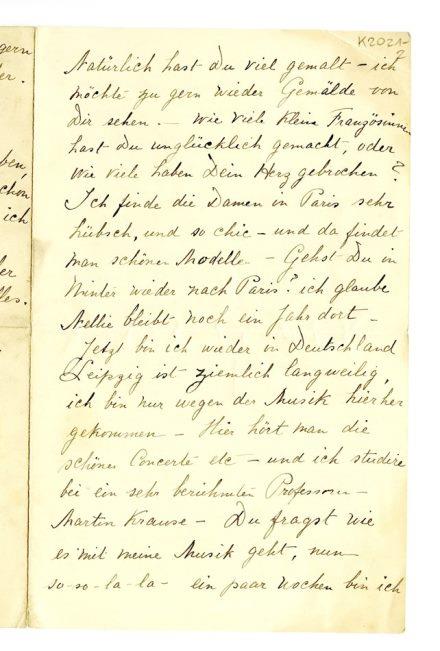 gern
er.
ben,
schon
ich
her
lles.
K2021-
2
Natürlich hast Du viel gemalt – ich
möchte zu gern wieder Gemälde von
Dir sehen. – Wie viele kleine Französinnen
hast Du unglücklich gemacht, oder
wie viele haben Dein Herz gebrochen?
Ich finde die Damen in Paris sehr
hübsch, und so chic – und da findet
man schöner Modelle. – Gehst Du in
Winter wieder nach Paris? ich glaube
Nellie bleibt noch ein Jahr dort –
Jetzt bin ich wieder in Deutschland
Leipzig ist ziemlich langweilig,
ich bin nur wegen der Musik hierher
gekommen – Hier hört man die
schönen Concerte etc – und ich studire
bei ein sehr berühmten Professor –
Martin Krause – Du fragst wie
es mit meine Musik geht, nun
so-so-la-la- ein paar Wochen bin ich